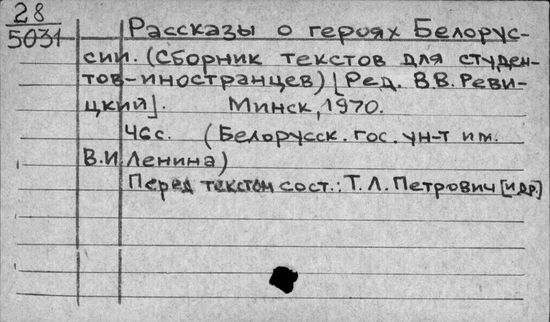 28
5031
Рассказы о героях Белорус-
сии. (Сборник текстов для студен-
тов-иностранцев) [Ред. В.В. Реви-
цкий]. Минск, 1970.
46с. (Белорусск. гос. ун-т им.
В.И. Ленина)
Перед текстом сост.: Т.Л. Петрович [и др.]